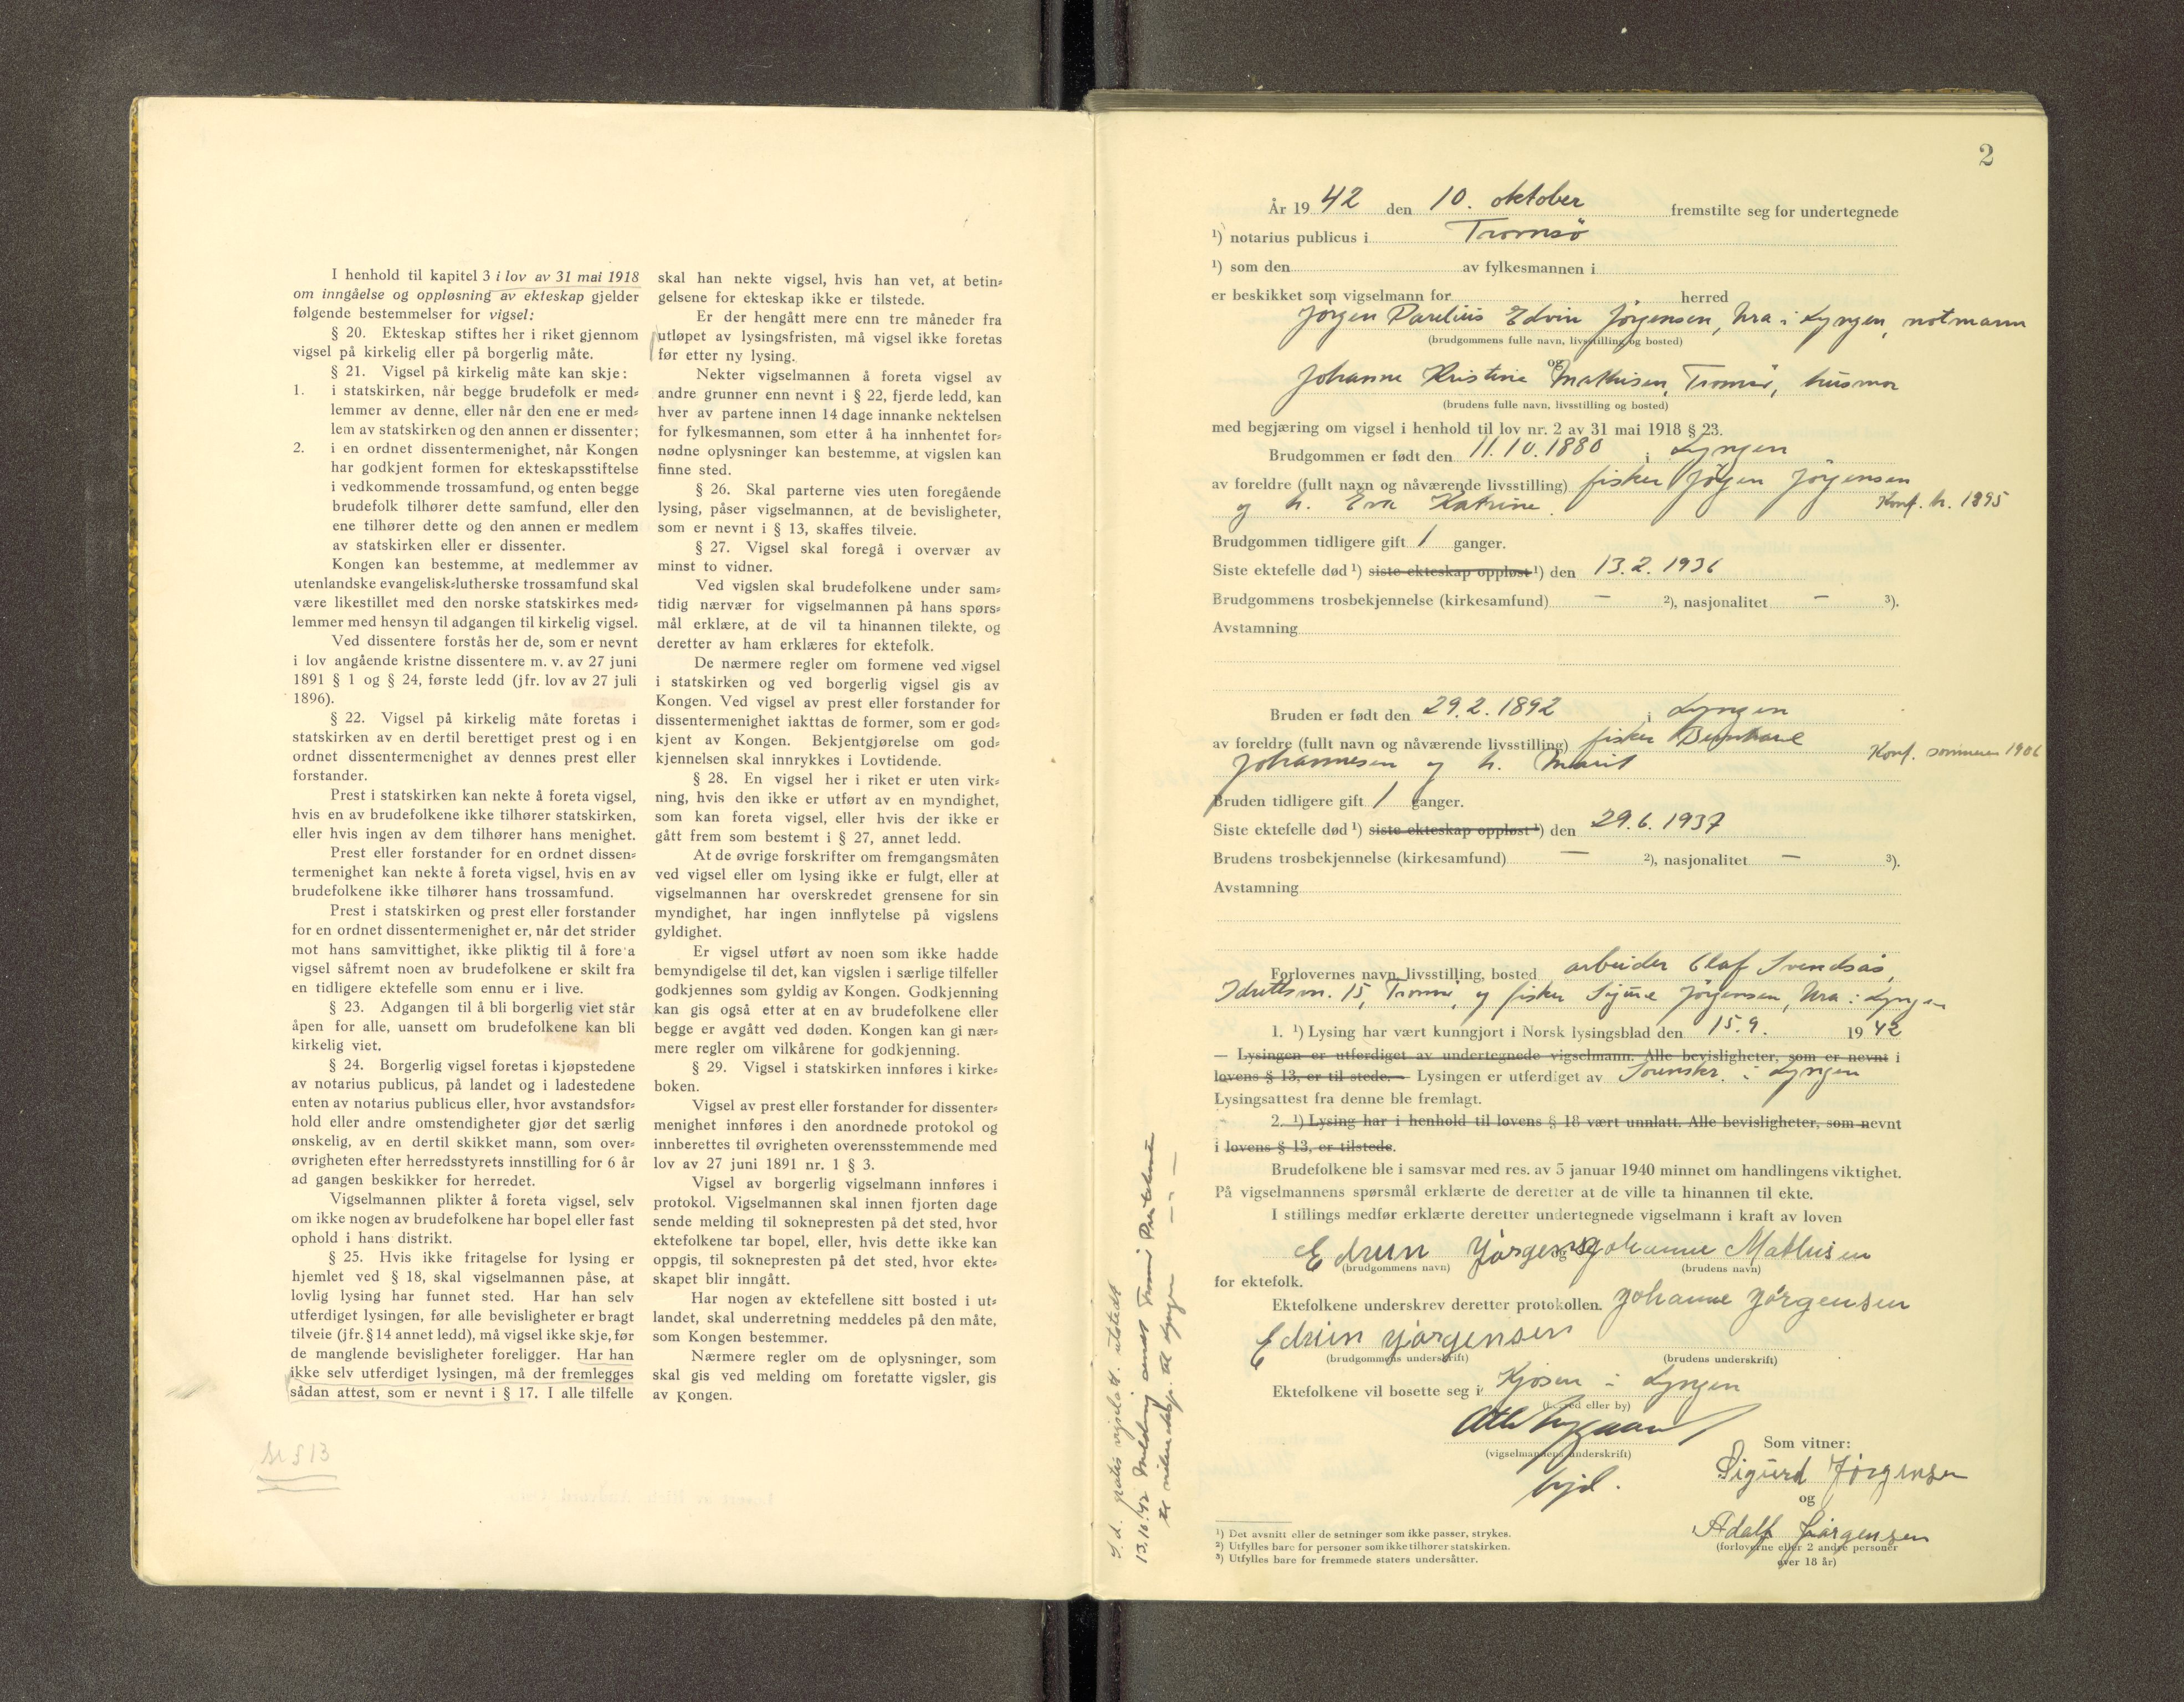 I henhold til kapitel 3 i lov av 31 mai 1918
om inngåelse og oppløsning av ekteskap gjelder
følgende bestemmelser for vigsel:
§ 20. Ekteskap stiftes her i riket gjennom
vigsel på kirkelig eller på borgerlig måte.
§ 21. Vigsel på kirkelig måte kan skje:
1. i statskirken, når begge brudefolk er med=
lemmer av denne, eller når den ene er med=
lem av statskirken og den annen er dissenter;
2. i en ordnet dissentermenighet, når Kongen
har godkjent formen for ekteskapsstiftelse
i vedkommende trossamfund, og enten begge
brudefolk tilhører dette samfund, eller den
ene tilhører dette og den annen er medlem
av statskirken eller er dissenter.
Kongen kan bestemme, at medlemmer av
utenlandske evangelisk=lutherske trossamfund skal
være likestillet med den norske statskirkes med=
lemmer med hensyn til adgangen til kirkelig vigsel.
Ved dissentere forstås her de, som er nevnt
i lov angående kristne dissentere m. v. av 27 juni
1891 § 1 og § 24, første ledd (jfr. lov av 27 juli
1896).
§ 22. Vigsel på kirkelig måte foretas i
statskirken av en dertil berettiget prest og i en
ordnet dissentermenighet av dennes prest eller
forstander.
Prest i statskirken kan nekte å foreta vigsel,
hvis en av brudefolkene ikke tilhører statskirken,
eller hvis ingen av dem tilhører hans menighet.
Prest eller forstander for en ordnet dissen=
termenighet kan nekte å foreta vigsel, hvis en av
brudefolkene ikke tilhører hans trossamfund.
Prest i statskirken og prest eller forstander
for en ordnet dissentermenighet er, når det strider
mot hans samvittighet, ikke pliktig til å fore a
vigsel såfremt noen av brudefolkene er skilt fra
en tidligere ektefelle som ennu er i live.
§ 23. Adgangen til å bli borgerlig viet står
åpen for alle, uansett om brudefolkene kan bli
kirkelig viet.
§ 24. Borgerlig vigsel foretas i kjøpstedene
av notarius publicus, på landet og i ladestedene
enten av notarius publicus eller, hvor avstandsfor=
hold eller andre omstendigheter gjør det særlig
ønskelig, av en dertil skikket mann, som over=
øvrigheten efter herredsstyrets innstilling for 6 år
ad gangen beskikker for herredet.
Vigselmannen plikter å foreta vigsel, selv
om ikke nogen av brudefolkene har bopel eller fast
ophold i hans distrikt.
§ 25. Hvis ikke fritagelse for lysing er
hjemlet ved § 18, skal vigselmannen påse, at
lovlig lysing har funnet sted. Har han selv
utferdiget lysingen, før alle bevisligheter er bragt
tilveie (jfr. § 14 annet ledd), må vigsel ikke skje, før
de manglende bevisligheter foreligger. Har han
ikke selv utferdiget lysingen, må der fremlegges
sådan attest, som er nevnt i § 17. I alle tilfelle
§ 13
skal han nekte vigsel, hvis han vet, at betin=
gelsene for ekteskap ikke er tilstede.
Er der hengått mere enn tre måneder fra
utløpet av lysingsfristen, må vigsel ikke foretas
før etter ny lysing.
Nekter vigselmannen å foreta vigsel av
andre grunner enn nevnt i § 22, fjerde ledd, kan
hver av partene innen 14 dage innanke nektelsen
for fylkesmannen, som etter å ha innhentet for=
nødne oplysninger kan bestemme, at vigslen kan
finne sted.
§ 26. Skal parterne vies uten foregående
lysing, påser vigselmannen, at de bevisligheter,
som er nevnt i § 13, skaffes tilveie.
§ 27. Vigsel skal foregå i overvær av
minst to vidner.
Ved vigslen skal brudefolkene under sam=
tidig nærvær for vigselmannen på hans spørs=
mål erklære, at de vil ta hinannen tilekte, og
deretter av ham erklæres for ektefolk.
De nærmere regler om formene ved vigsel
i statskirken og ved borgerlig vigsel gis av
Kongen. Ved vigsel av prest eller forstander for
dissentermenighet iakttas de former, som er god=
kjent av Kongen. Bekjentgjørelse om god=
kjennelsen skal innrykkes i Lovtidende.
§ 28. En vigsel her i riket er uten virk=
ning, hvis den ikke er utført av en myndighet,
som kan foreta vigsel, eller hvis der ikke er
gått frem som bestemt i § 27, annet ledd.
At de øvrige forskrifter om fremgangsmåten
ved vigsel eller om lysing ikke er fulgt, eller at
vigselmannen har overskredet grensene for sin
myndighet, har ingen innflytelse på vigslens
gyldighet.
Er vigsel utført av noen som ikke hadde
bemyndigelse til det, kan vigslen i særlige tilfeller
godkjennes som gyldig av Kongen. Godkjenning
kan gis også etter at en av brudefolkene eller
begge er avgått ved døden. Kongen kan gi nær=
mere regler om vilkårene for godkjenning.
§ 29. Vigsel i statskirken innføres i kirke=
boken.
Vigsel av prest eller forstander for dissenter=
menighet innføres i den anordnede protokol og
innberettes til øvrigheten overensstemmende med
lov av 27 juni 1891 nr. 1 § 3.
Vigsel av borgerlig vigselmann innføres i
protokol. Vigselmannen skal innen fjorten dage
sende melding til soknepresten på det sted, hvor
ektefolkene tar bopel, eller, hvis dette ikke kan
oppgis, til soknepresten på det sted, hvor ekte=
skapet blir inngått.
Har nogen av ektefellene sitt bosted i ut=
landet, skal underretning meddeles på den måte,
som Kongen bestemmer.
Nærmere regler om de oplysninger, som
skal gis ved melding om foretatte vigsler, gis
av Kongen.
2
År 1942 den 10. oktober fremstilte seg for undertegnede
¹) notarius publicus i Tromsø
¹) som den av fylkesmannen i
er beskikket som vigselmann for herred
Jørgen Parelius Edvin Jørgensen, Ura i Lyngen, notmann
(brudgommens fulle navn, livsstilling og bosted)
og
Johanne Kristine Mathisen, Tromsø, husmor
(brudens fulle navn, livsstilling og bosted)
med begjæring om vigsel i henhold til lov nr. 2 av 31 mai 1918 § 23.
Brudgommen er født den 11.10.1880 i Lyngen
av foreldre (fullt navn og nåværende livsstilling) fisker Jørgen Jørgensen
og h. Eva Katrine. Konf. h. 1895
Brudgommen tidligere gift 1 ganger.
Siste ektefelle død ¹) siste ekteskap oppløst ¹) den 13.2.1936
Brudgommens trosbekjennelse (kirkesamfund) — ²), nasjonalitet — ³).
Avstamning
Bruden er født den 29.2.1892 i Lyngen
av foreldre (fullt navn og nåværende livsstilling) fisker Bernhard
Johannesen og h. Marit Konf. sommeren 1906
Bruden tidligere gift 1 ganger.
Siste ektefelle død ¹) siste ekteskap oppløst ¹) den 29.6.1937
Brudens trosbekjennelse (kirkesamfund) — ²), nasjonalitet — ³).
Avstamning
Forlovernes navn, livsstilling, bosted arbeider Olaf Svendsås,
Idrettsvn. 15, Tromsø, og fisker Jørgensen, Ura i Lyngen
1. ¹) Lysing har vært kunngjort i Norsk lysingsblad den 15.9. 1942
— Lysingen er utferdiget av undertegnede vigselmann. Alle bevisligheter, som er nevnt i
lovens § 13, er til stede. — Lysingen er utferdiget av Sorenskr. i Lyngen
Lysingsattest fra denne ble fremlagt.
2. ¹) Lysing har i henhold til lovens § 18 vært unnlatt. Alle bevisligheter, som nevnt
i lovens § 13, er tilstede.
Brudefolkene ble i samsvar med res. av 5 januar 1940 minnet om handlingens viktighet.
På vigselmannens spørsmål erklærte de deretter at de ville ta hinannen til ekte.
I stillings medfør erklærte deretter undertegnede vigselmann i kraft av loven
Edvin Jørgensen og Johanne Mathisen
(brudgommens navn) (brudens navn)
for ektefolk.
Ektefolkene underskrev deretter protokollen. Johanne Jørgensen
Edvin Jørgensen
(brudgommens underskrift) (brudens underskrift)
Ektefolkene vil bosette seg i Kjosen i Lyngen
(herred eller by)
(vigselmannens underskrift)
Som vitner:
Sigurd Jørgensen
og
Adolf Jørgensen
(forloverne eller 2 andre personer
over 18 år)
¹) Det avsnitt eller de setninger som ikke passer, strykes.
²) Utfylles bare for personer som ikke tilhører statskirken.
³) Utfylles bare for fremmede staters undersåtter.
S.d. gratis vigselatt. utstedt
13.10.42 Melding sendt Tromsø
til Lyngen